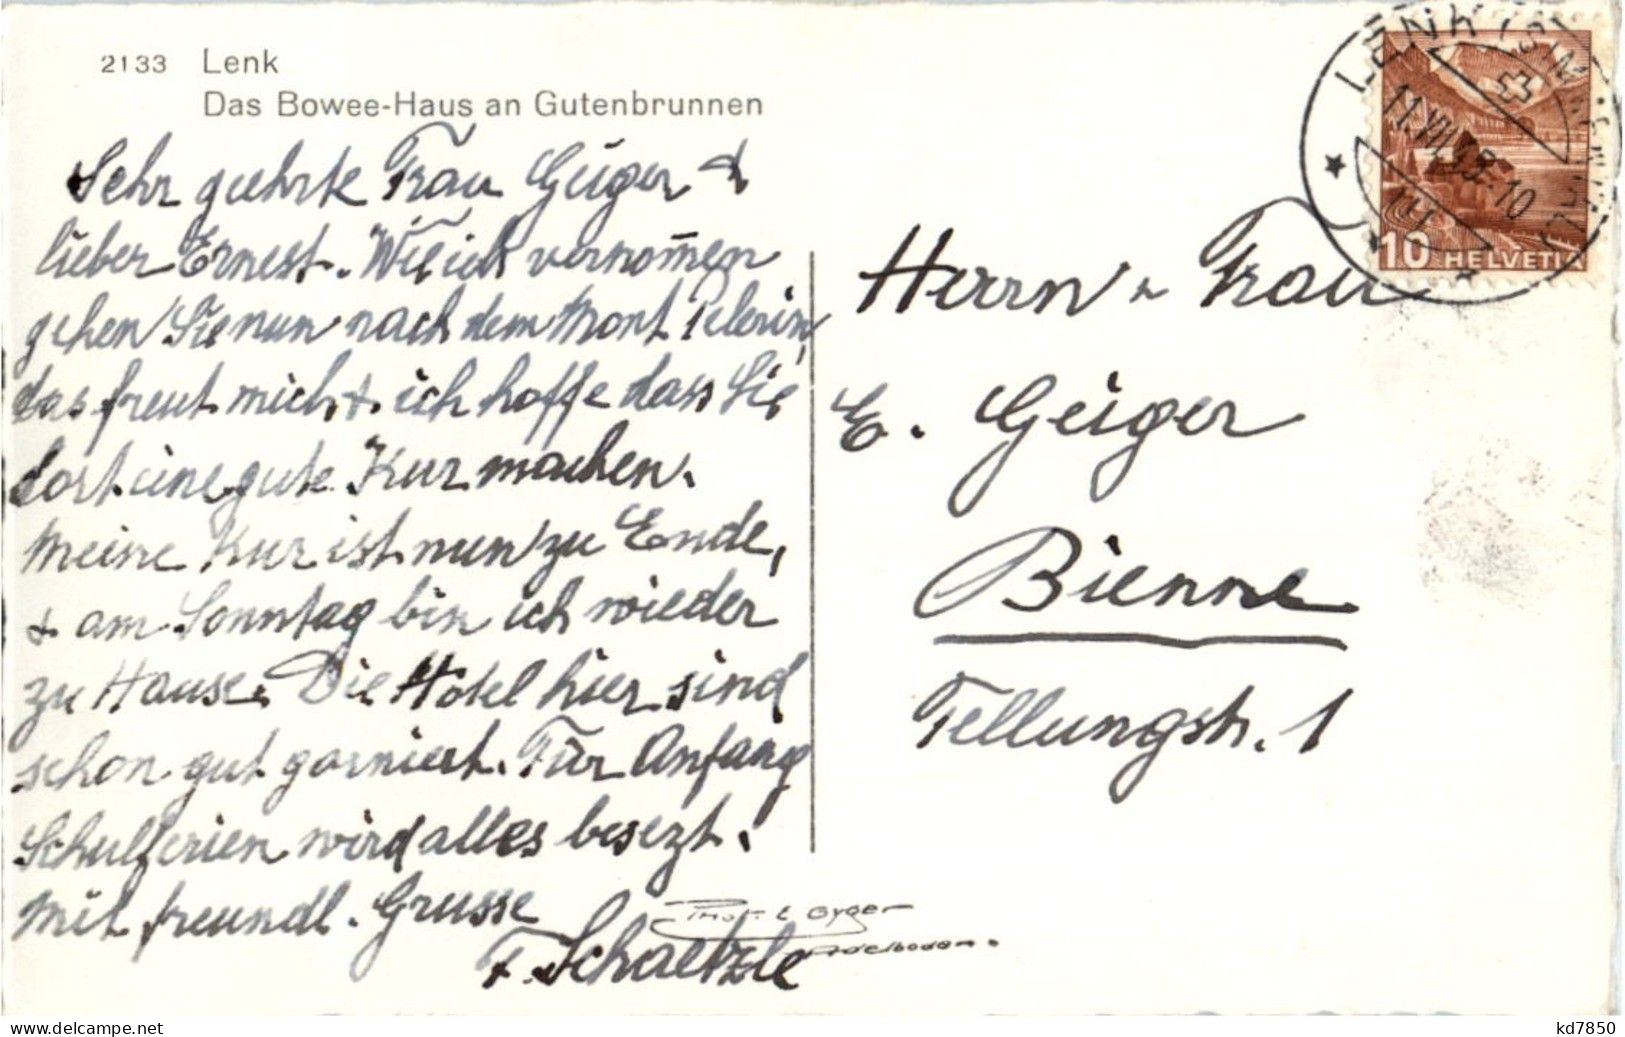 2133 Lenk
Das Bowee-Haus an Gutenbrunnen
Sehr geehrte Frau Geiger &
lieber Ernest. Wie ich vernom̅en
gehen Sie nun nach dem Mont Pelerin,
das freut mich, & ich hoffe dass Sie
dort eine gute Kur machen.
Meine Kur ist nun zu Ende,
& am Sonntag bin ich wieder
zu Hause. Die Hotel hier sind
schon gut garniert. Für Anfang
Schulferien wird alles besezt.
Mit freundl. Grusse
F. Schaetzle
Phot. E Gyger
Adelboden.
LENK (SIMMENTAL)
10 HELVETIA
Herrn & Frau
E. Geiger
Bienne
Tellungstr. 1
kd7850
www.delcampe.net